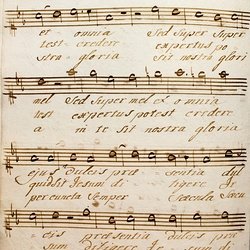 et omnia Sed Super Super
test credere expertus po
stra gloria sit nostra glori
mel Sed Super mel et omnia
test expertus potest credere
a in te sit nostra gloria
ejus dulcis præ sentia dul
quid sit Jesum di ligere
per cuncta Semper Sæcula Sæcu
cis præ sentia dulcis
sum diligere